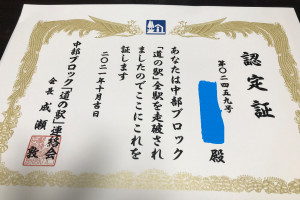 認定証
第〇二四五九号
殿
あなたは中部ブロック
「道の駅」全駅を走破され
ましたのでここにこれを
証します
二〇二一年十月吉日
中部ブロック「道の駅」連絡会
会長 成瀬 敦